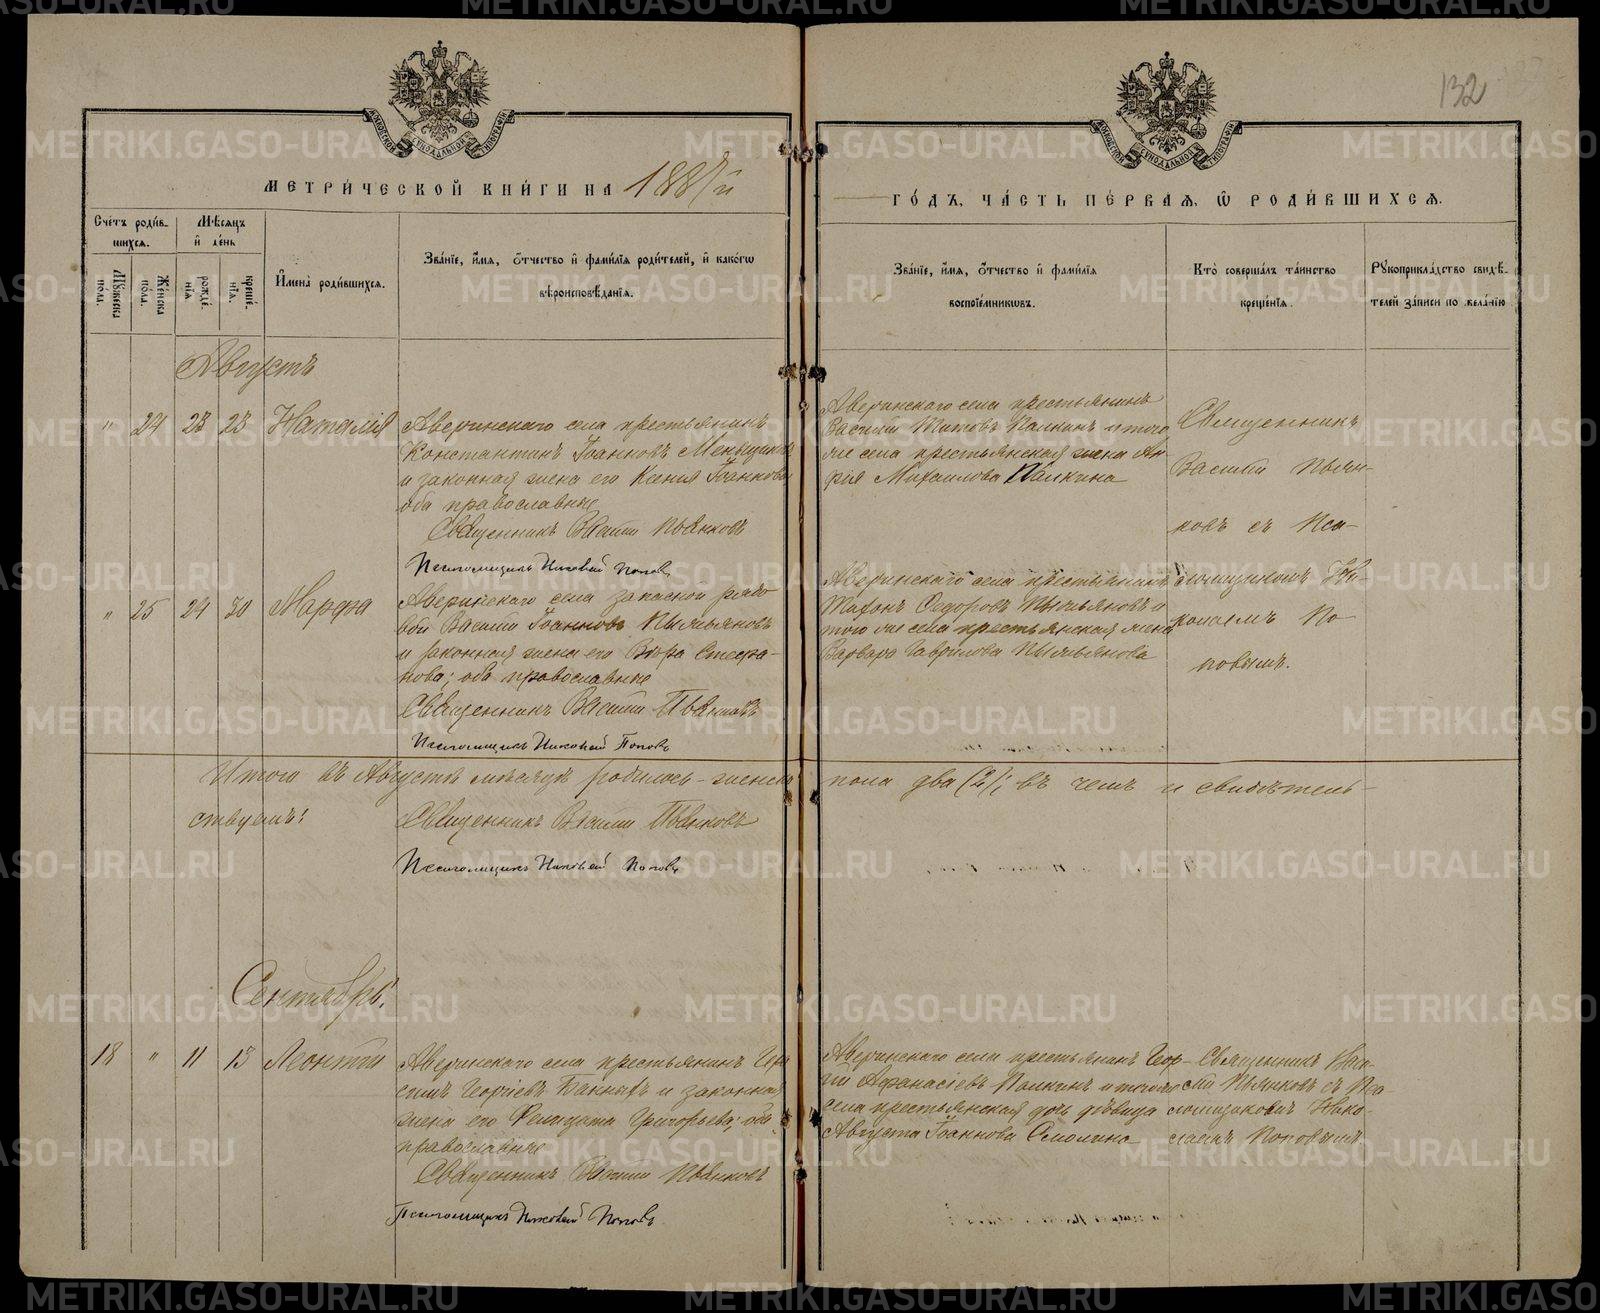 132
МЕТРИ́ЧЕСКОЙ КНИ́ГИ НА 1887й
ГО́ДЪ, ЧА́СТЬ ПЕ́РВАЯ, Ѽ РОДИ́ВШИХСЯ.
Сче́тъ роди́в-
шихся.
Мѣсяцъ
и де́нь
Му́жеска
по́ла.
Же́нска
по́ла.
рожде́-
нія
креще́-
нія.
И҆мена̀ роди́вшихся.
Зва́нїе, и҆́мя, ѻ҆́тчество и҆ фами́лїя роди́телей, и҆ како́гѡ
вѣроисповѣ́данїя.
Зва́нїе, и҆́мя, ѻ҆́тчество и҆ фами́лїя
воспрїе́мникѡвъ.
Кто̀ соверша́лъ та́инство
креще́нїя.
Рукоприкла́дство свидѣ́-
телей за́писи по жела́нїю
Августъ
" 24 23 23 Наталія
Аверинскаго села крестьянинъ
Константинъ Іоанновъ Меньщиковъ
и законная жена его Ксенія Іоаннова
оба православные
Священникъ Василій Пьянковъ
Псаломщикъ Николай Поповъ
Аверинскаго села крестьянинъ
Василій Титовъ Палкинъ и того
же села крестьянская жена
Михаилова Палкина
Священникъ
Василій Пьян-
ковъ съ Пса-
ломщикомъ Ни-
колаемъ По-
повымъ.
" 25 24 30 Марфа
Аверинскаго села запасной рядо
вой Василій Іоанновъ
и законная жена его Стефа-
нова; оба православные
Священникъ Василій Пьянковъ
Псаломщикъ Николай Поповъ
Аверинскаго села крестьянинъ
Федоровъ и
того же села крестьянская жена
Варвара Гаврилова
Итого въ Августѣ мѣсяцѣ родилось женска
пола два (2); въ чемъ и свидѣтель-
ствуемъ:
Священникъ Василій Пьянковъ
Псаломщикъ Николай Поповъ
Сентябрь.
18 " 11 13 Леонтій
Аверинскаго села крестьянинъ Гера
симъ Георгіевъ и законная
жена его Григорьева; оба
православные
Священникъ Василій Пьянковъ
Псаломщикъ Николай Поповъ
Аверинскаго села крестьянинъ Геор-
гій Афанасіевъ Палкинъ и того же
села крестьянская дочь дѣвица
Августа Іоаннова Смолина
Священникъ Васи-
лій Пьянковъ съ Пса-
ломщикомъ Нико-
лаемъ Поповымъ.
METRIKI.GASO-URAL.RU